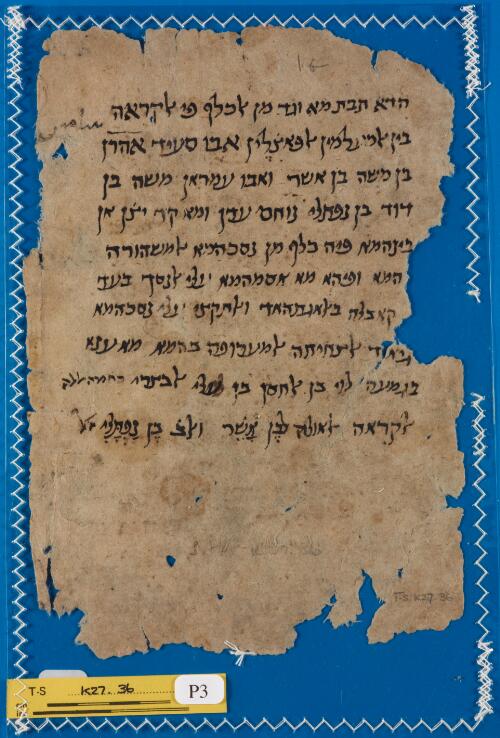 הדא תבת מא וגד מן אלכלף פי אלקראה
בין אלמעלמין אלפאצלין אבו סעיד אהרן
בן משה בן אשר ואבו עמראן משה בן
דוד בן נפתלי נוחם עדן ומא קד יצן אן
בינהמא פיה כלף מן נסכהמא אלמשהורה
המא ופיהא מא אסמהמא יעני אלנסך בעד
קאבלה באלאגתהאד ואלתקצי יעני נסכהמא
אלצחיחה אלמערופה בהמא מא עני
בגמעה לוי בן אלחסן בן עלי אלבצרי רחמה אללה
אלקראה אלאולה לבן אשר ואלב׳ בן נפתלי
T-S. K27. 36
T-S K27. 36 P3